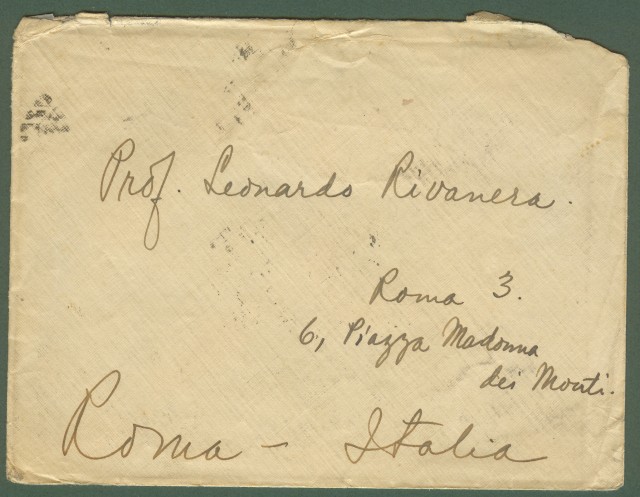 Prof. Leonardo Rivanera.
Roma 3.
6, Piazza Madonna
dei Monti.
Roma - Italia